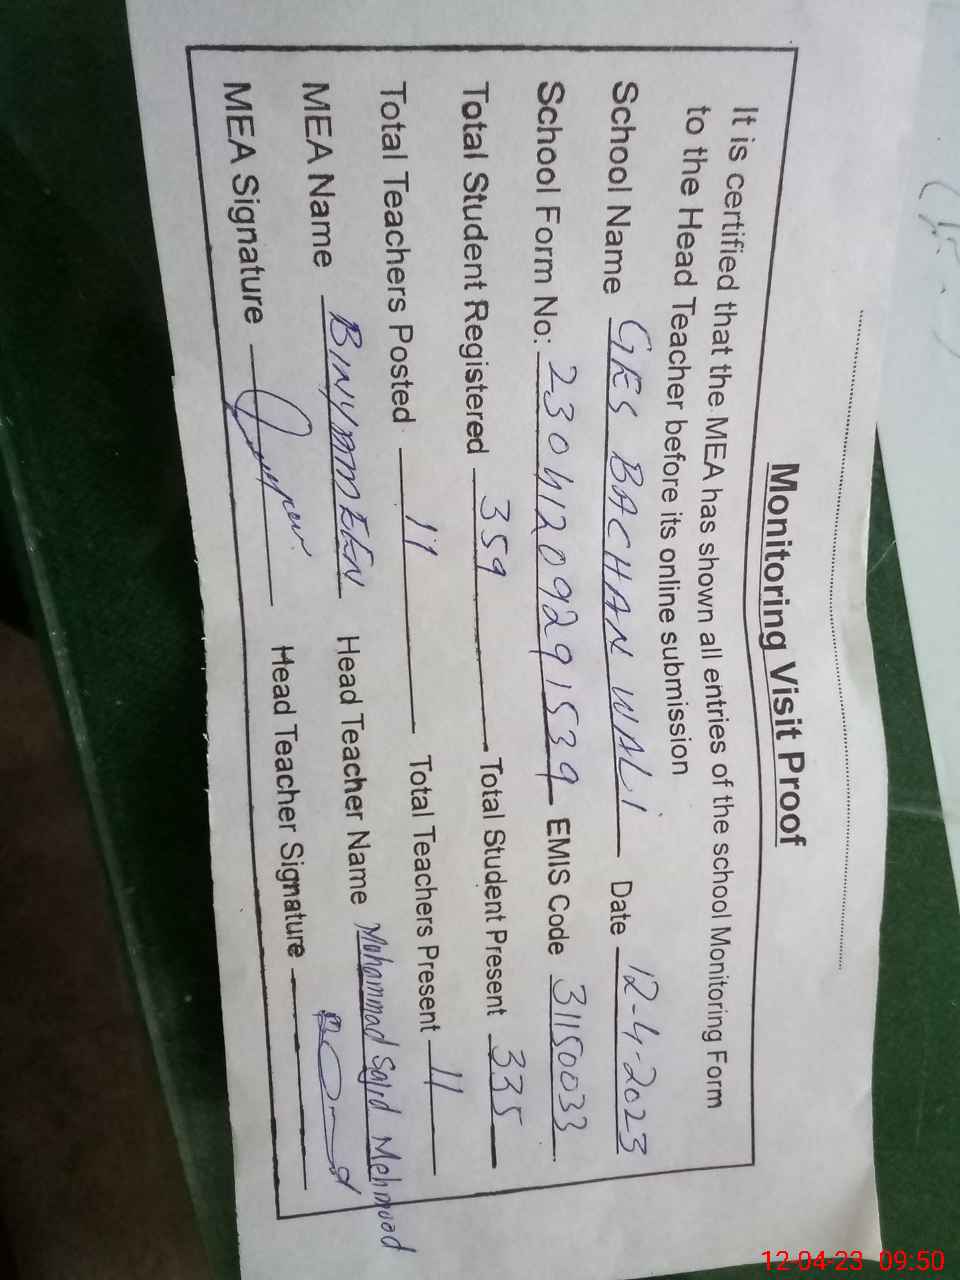 Monitoring Visit Proof
It is certified that the MEA has shown all entries of the school Monitoring Form
to the Head Teacher before its online submission
School Name GES BACHAN WALI Date 12-4-2023
School Form No: 23041209291539 EMIS Code 31150033
Total Student Registered 359 Total Student Present 335
Total Teachers Posted 11 Total Teachers Present 11
MEA Name BINYAMEEN Head Teacher Name Mohammad Sajid Mehmood
MEA Signature Head Teacher Signature
12-04-23 09:50